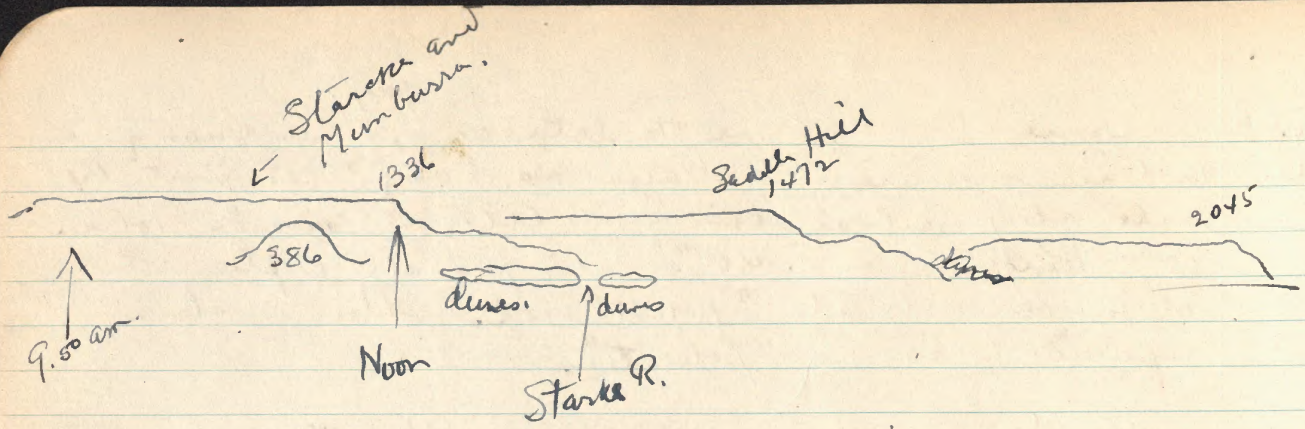 Starcke and
Mumburra.
1336
Saddle Hill
1472
2045
386
dunes.
dunes
dunes
9.50 am.
Noon
Starke R.